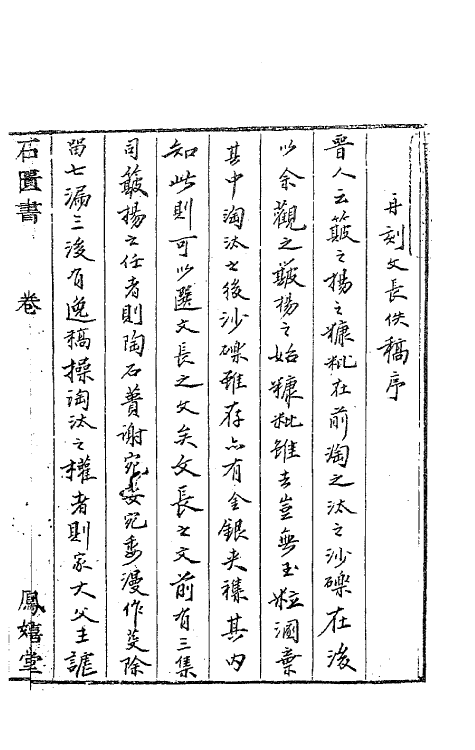 再刻文長佚稿序
晉人云簸之揚之糠粃在前淘之汰之沙礫在後
以余觀之簸揚之始糠粃雖去豈無玉粒溷棄
其中淘汰之後沙礫雖存亦有金銀夾襍其內
知此則可以選文長之文矣文長之文前有三集
司簸揚之任者則陶石蕢謝宛委宛委漫作芟除
留七漏三後有逸稿操淘汰之權者則家大父主謔
石匱書
卷
鳳嬉堂